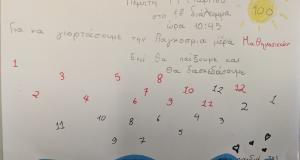 στο 1ο διάλειμμα
ώρα 10:45
100
Για να γιορτάσουμε την Παγκόσμια μέρα Μαθηματικών
Εκεί θα παίξουμε και
θα διασκεδάσουμε
1 3 5 8
2 4 6 7 9 10 11 12 12
11 10 8 6 4 3 2 1
9 7 5